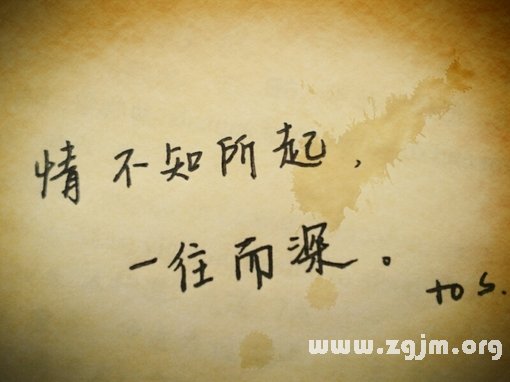 情不知所起，
一往而深。
to S.
www.zgjm.org